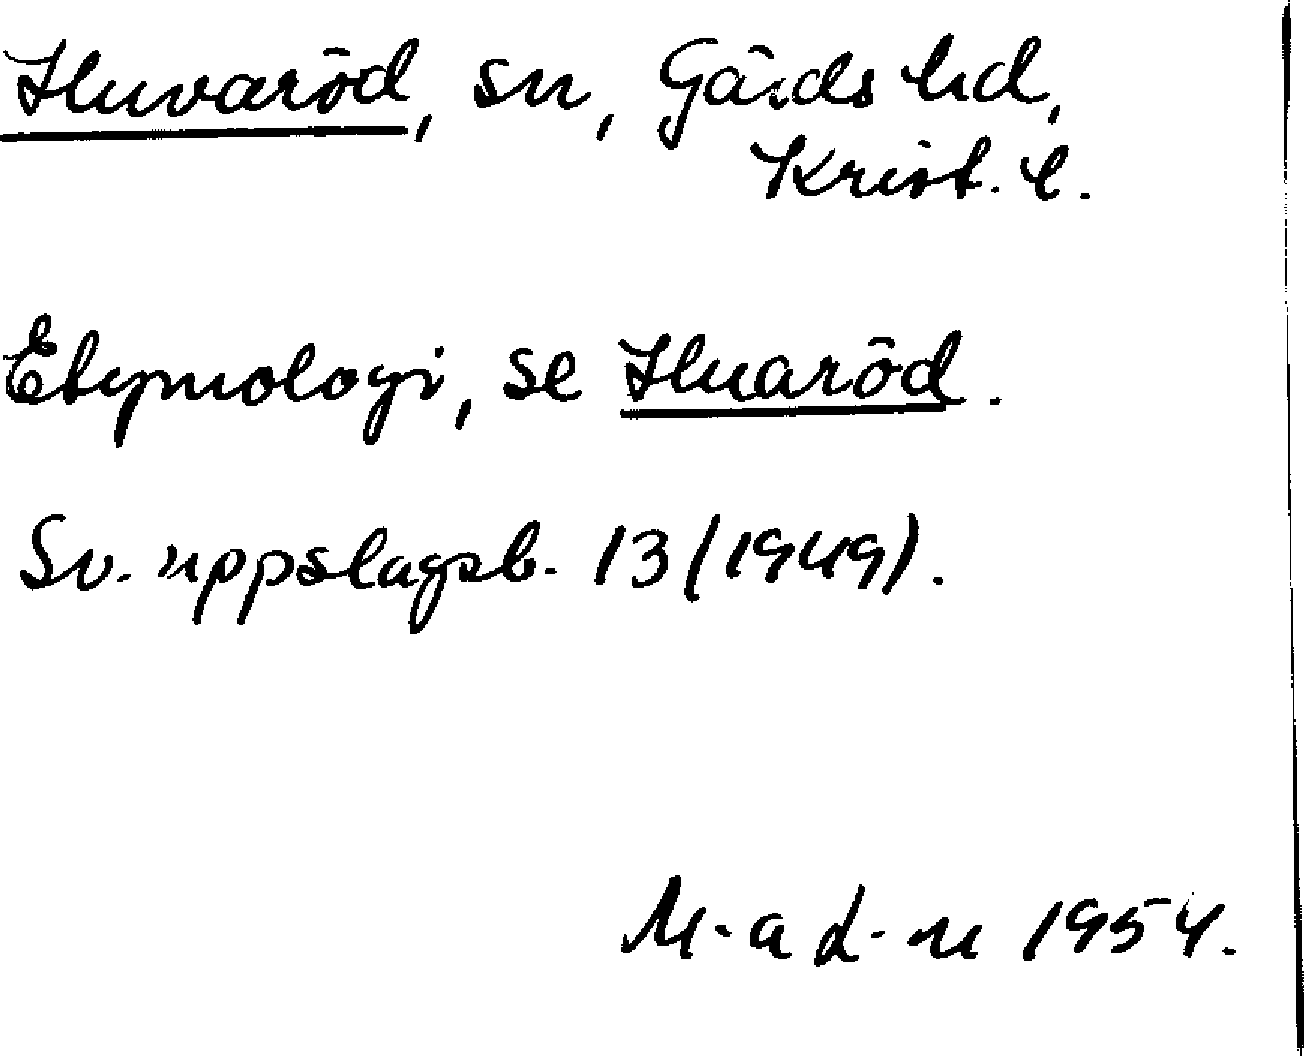 Huvaröd, sn, Gärds hd,
Krist. l.
Etymologi, se Huaröd.
Sv. uppslagsb. 13 (1949).
M-a L-n 1954.